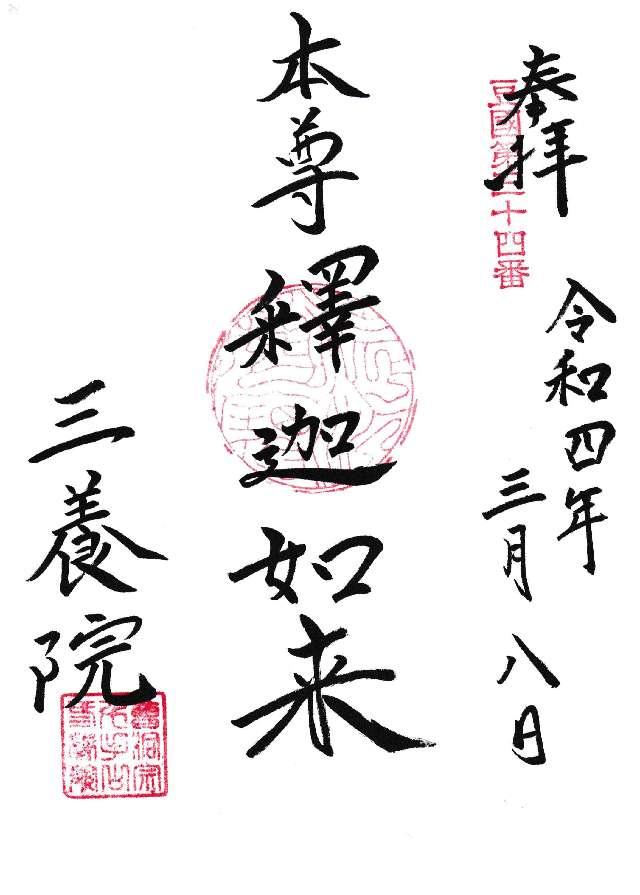 奉拝
豆國第三十四番
令和四年
三月八日
本尊釋迦如来
三養院